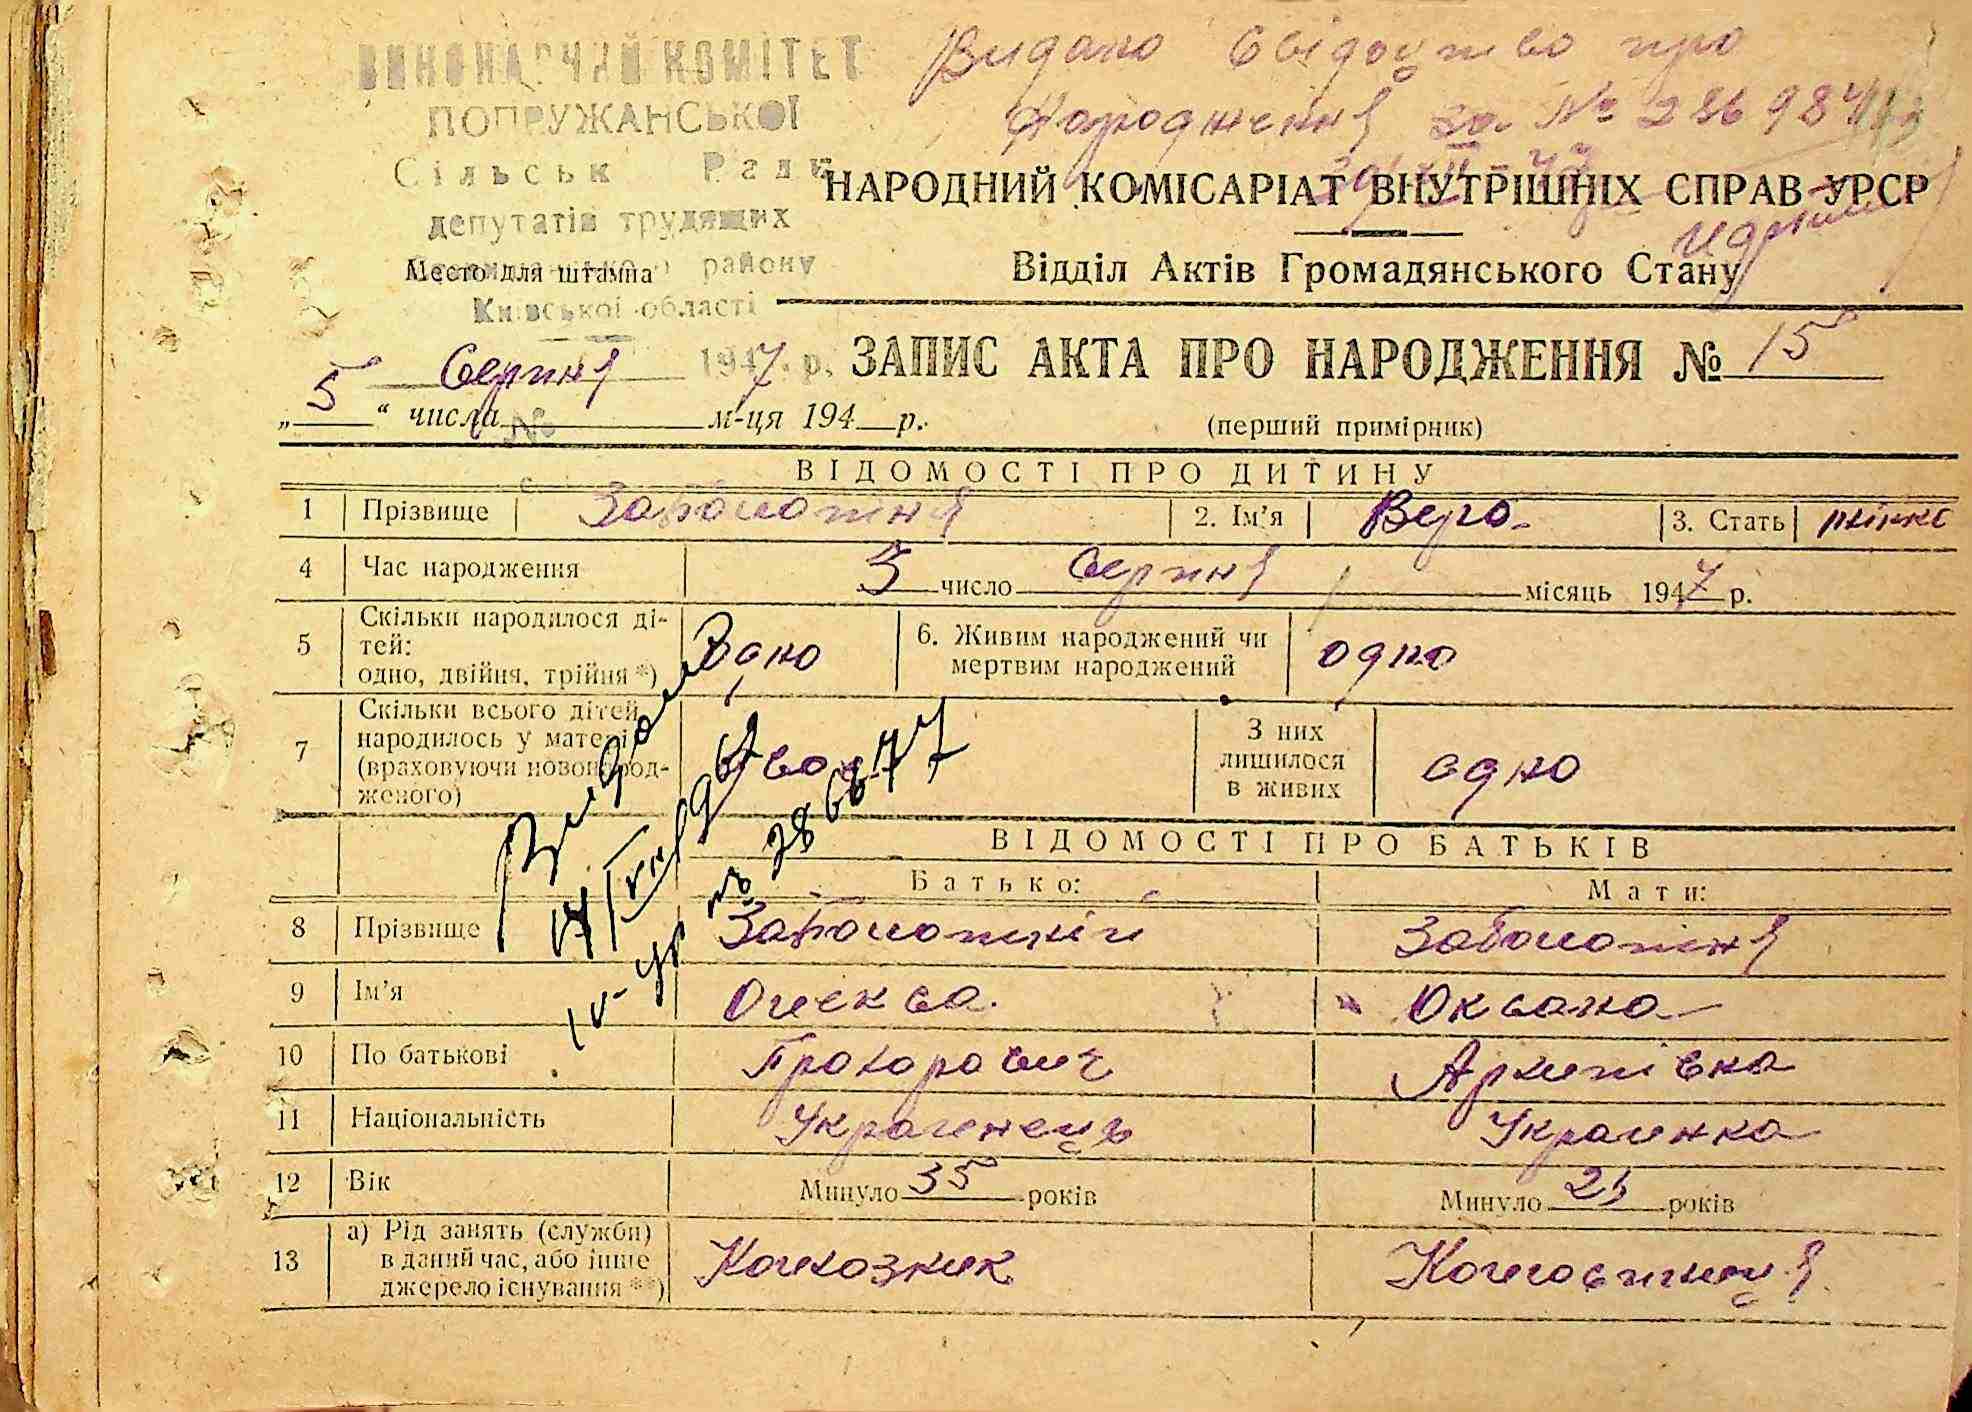 ВИКОНАВЧИЙ КОМІТЕТ
ПОПРУЖАНСЬКОЇ
Сільськ Ради
депутатів трудящих
району
Київської області
Место для штампа
Видано Свідоцтво про
Народження за №
НАРОДНИЙ КОМІСАРІАТ ВНУТРІШНІХ СПРАВ УРСР
Відділ Актів Громадянського Стану
5 Серпня 1947 р.
ЗАПИС АКТА ПРО НАРОДЖЕННЯ № 15
„5“ числа м-ця 194 р.
№
(перший примірник)
ВІДОМОСТІ ПРО ДИТИНУ
1 Прізвище Заболотня 2. Ім'я Вера 3. Стать жінкс
4 Час народження 3 число Серпня місяць 1947 р.
5 Скільки народилося дітей: одно, двійня, трійня *) Одно 6. Живим народжений чи мертвим народжений одно
7 Скільки всього дітей народилось у матері (враховуючи новонародженого) З них лишилося в живих одно
ВІДОМОСТІ ПРО БАТЬКІВ
Батько: Мати:
8 Прізвище Заболотній Заболотня
9 Ім'я Олекса Оксана
10 По батькові Прохорович Архипівна
11 Національність Украинець Украинка
12 Вік Минуло 35 років Минуло років
13 а) Рід занять (служби) в даний час, або інше джерело існування **) Колхозник